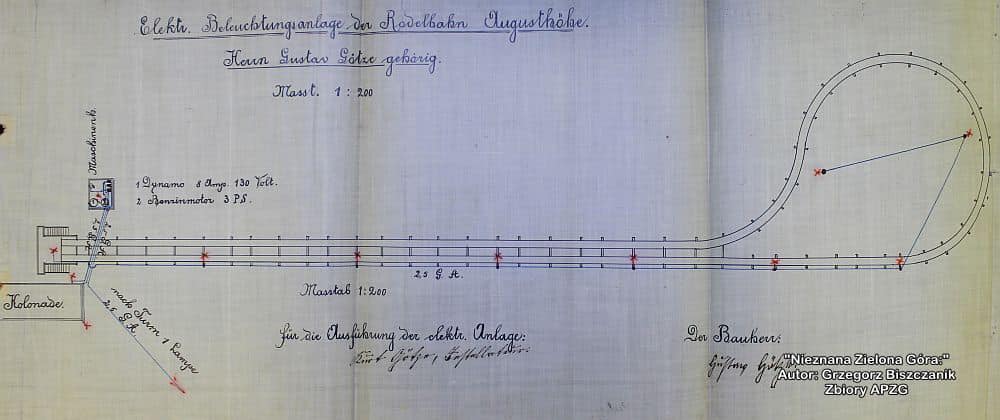 Elektr. Beleuchtungsanlage der Rodelbahn Augusthöhe.
Herrn Gustav Götze gehörig.
Masst. 1 : 200
Maschinenh.
1 Dynamo 8 Amp. 130 Volt.
2 Benzinmotor 3 P.S.
25 G. A.
Masstab 1:200
Kolonade.
nach Turm 1 Lampe
2,5 G. A.
für die Ausführung der elektr. Anlage:
Kurt Götze,
Der Bauherr:
Gustav
"Nieznana Zielona Góra:"
Autor: Grzegorz Biszczanik
Zbiory APZG